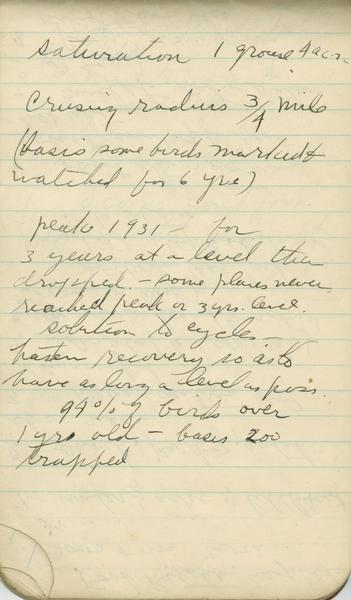 saturation 1 grouse 4 acre
Crusing radius 3/4 mile
(basis some birds marked &
watched for 6 yrs)
peak 1931 - for
3 years at a level then
dropped. - some places never
reached peak or 3 yrs. level.
solution to cycles -
hasten recovery so as to
have as long a level as poss.
94% of birds over
1 yrs old - basis 200
trapped